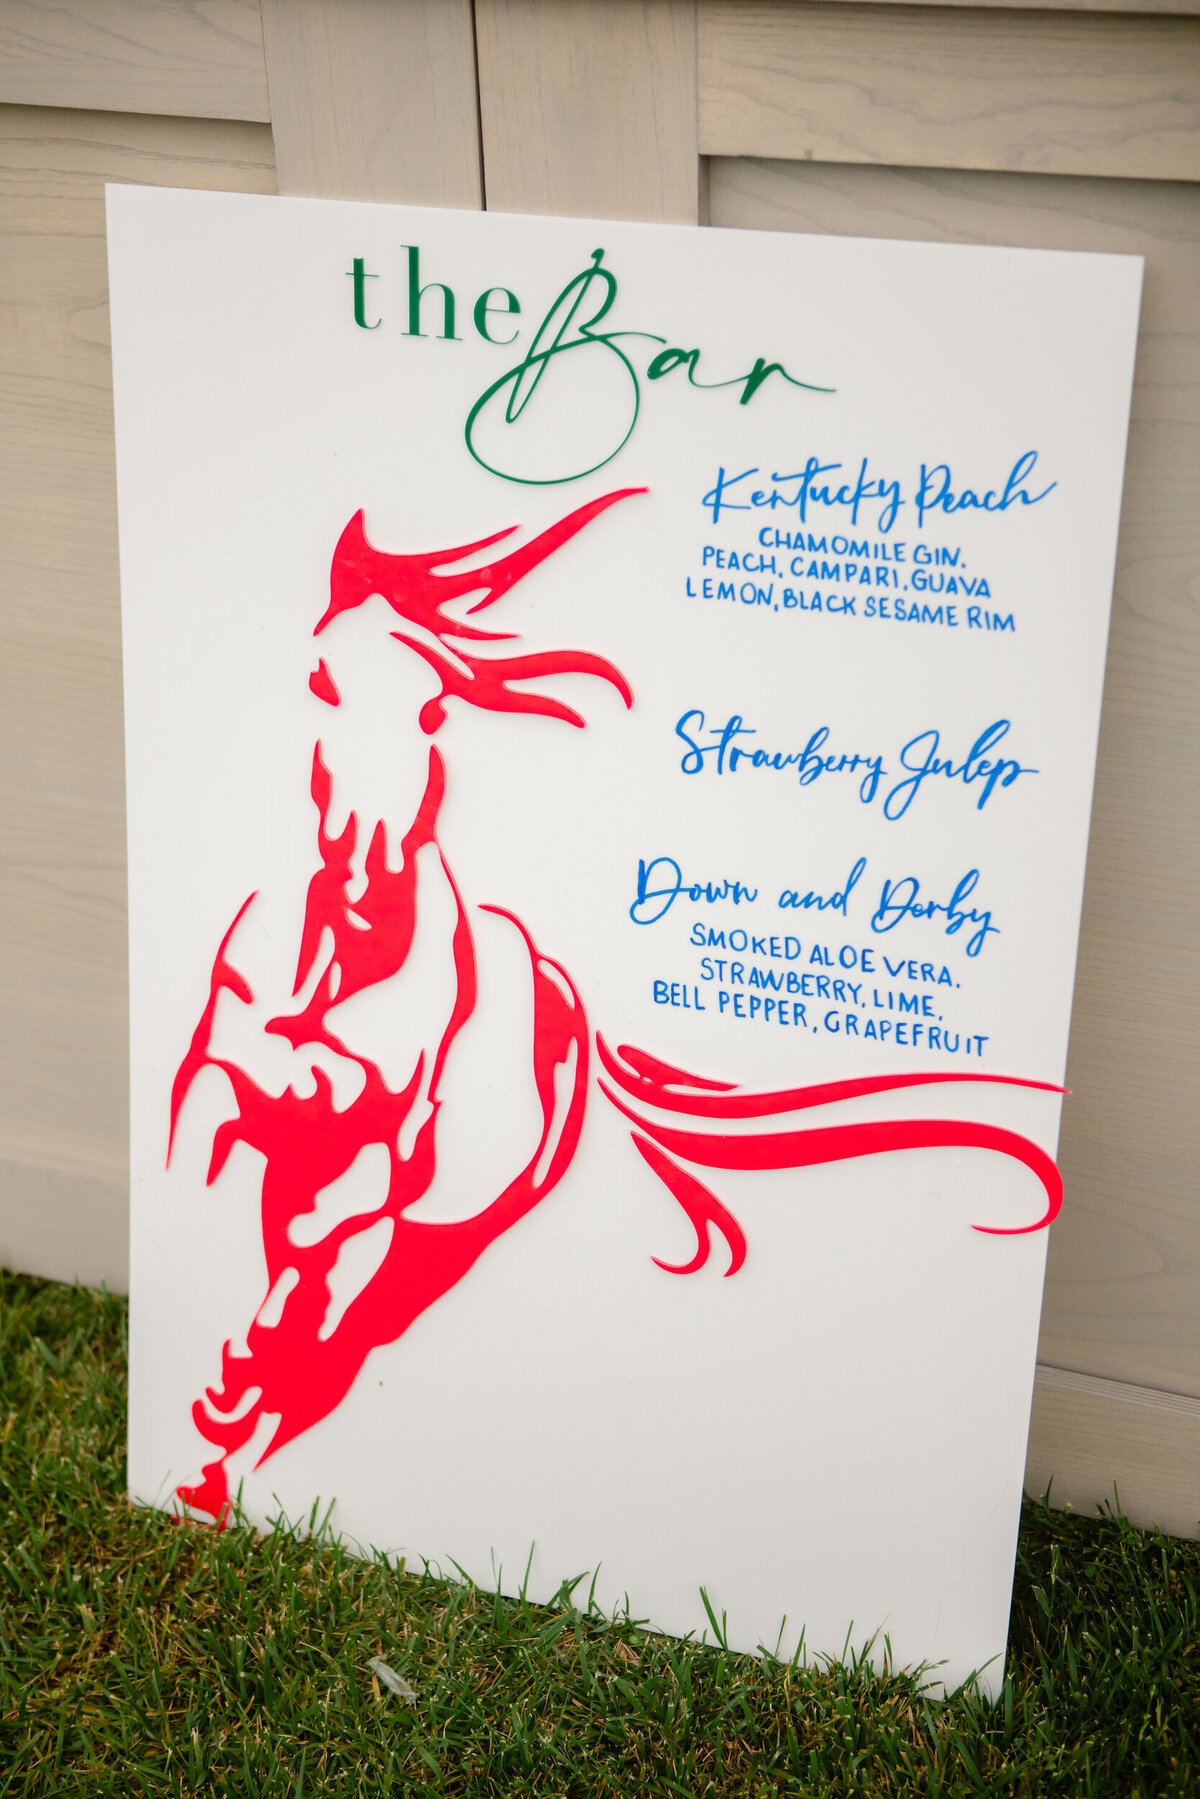 the Bar
Kentucky Peach
CHAMOMILE GIN,
PEACH, CAMPARI, GUAVA
LEMON, BLACK SESAME RIM
Strawberry Julep
Down and Derby
SMOKED ALOE VERA,
STRAWBERRY, LIME,
BELL PEPPER, GRAPEFRUIT